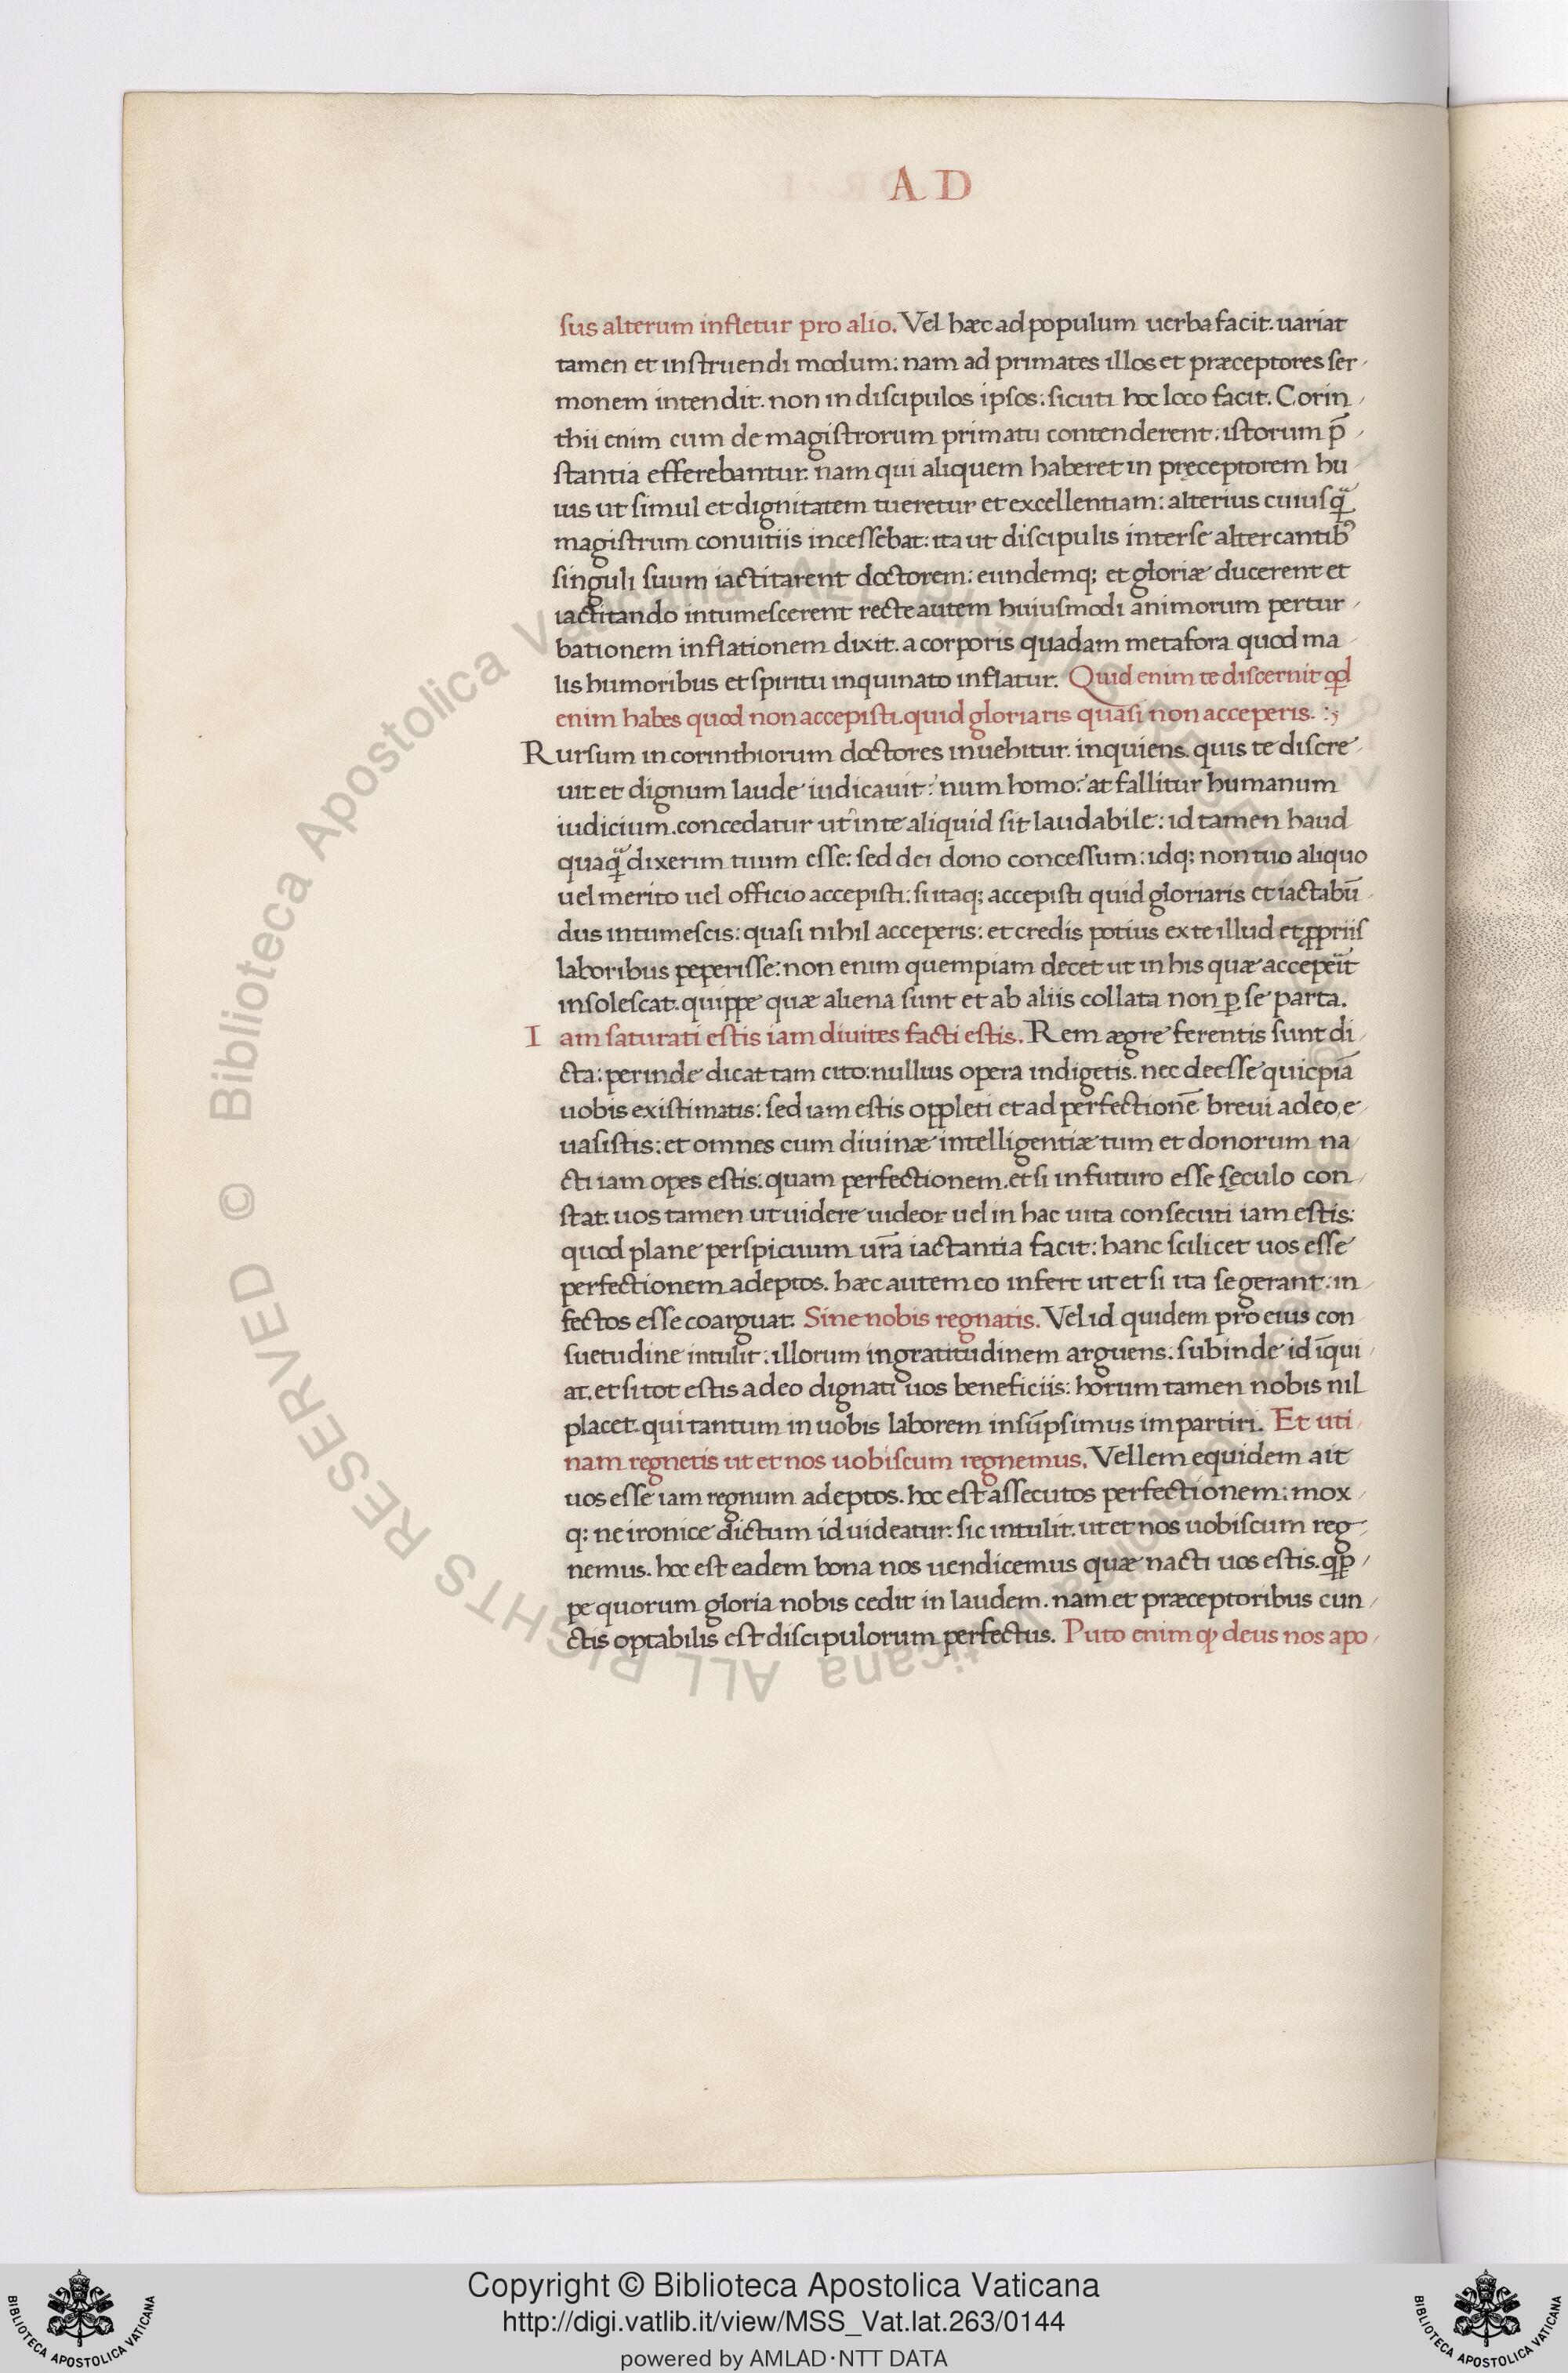 AD
sus alterum infletur pro alio. Vel hæc ad populum uerba facit. uariat
tamen et instruendi modum: nam ad primates illos et præceptores ser
monem intendit. non in discipulos ipsos: sicuti hoc loco facit. Corin
thii enim cum de magistrorum primatu contenderent: istorum p̄
stantia efferebantur. nam qui aliquem haberet in pręceptorem hu
ius ut simul et dignitatem tueretur et excellentiam: alterius cuiusq̃
magistrum conuitiis incessebat: ita ut discipulis inter se altercantibꝰ
singuli suum iactitarent doctorem: eundemq; et gloriæ ducerent et
iactitando intumescerent recte autem huiusmodi animorum pertur
bationem inflationem dixit. a corporis quadam metafora quod ma
lis humoribus et spiritu inquinato inflatur. Quid enim te discernit qd
enim habes quod non accepisti. quid gloriaris quasi non acceperis. :;
Rursum in corinthiorum doctores inuehitur. inquiens. quis te discre
uit et dignum laude iudicauit? num homo? at fallitur humanum
iudicium. concedatur ut in te aliquid sit laudabile: id tamen haud
quaq̃ dixerim tuum esse: sed dei dono concessum: idq; non tuo aliquo
uel merito uel officio accepisti: si itaq; accepisti quid gloriaris et iactabū
dus intumescis: quasi nihil acceperis: et credis potius ex te illud et ꝓpriis
laboribus peperisse: non enim quempiam decet ut in his quæ acceperit
insolescat. quippe quæ aliena sunt et ab aliis collata non ꝑ se parta.
Iam saturati estis iam diuites facti estis. Rem ægre ferentis sunt di
cta: perinde dicat tam cito: nullius opera indigetis. nec deesse quicpiā
uobis existimatis: sed iam estis oppleti et ad perfectionē breui adeo e
uasistis: et omnes cum diuinæ intelligentiæ tum et donorum na
cti iam opes estis: quam perfectionem. et si in futuro esse sęculo con
stat. uos tamen ut uidere uideor uel in hac uita consecuti iam estis:
quod plane perspicuum ur̄a iactantia facit: hanc scilicet uos esse
perfectionem adeptos. hæc autem eo infert ut et si ita se gerant: in
fectos esse coarguat. Sine nobis regnatis. Vel id quidem pro eius con
suetudine intulit: illorum ingratitudinem arguens. subinde id īqui
at. et si tot estis adeo dignati uos beneficiis: horum tamen nobis nil
placet. qui tantum in uobis laborem insūpsimus impartiri. Et uti
nam regnetis ut et nos uobiscum regnemus. Vellem equidem ait
uos esse iam regnum adeptos. hoc est assecutos perfectionem: mox
q: ne ironice dictum id uideatur: sic intulit. ut et nos uobiscum reg
nemus. hoc est eadem bona nos uendicemus quæ nacti uos estis. qp
pe quorum gloria nobis cedit in laudem. nam et præceptoribus cun
ctis optabilis est discipulorum perfectus. Puto enim ꝙ deus nos apo
Copyright © Biblioteca Apostolica Vaticana
http://digi.vatlib.it/view/MSS_Vat.lat.263/0144
powered by AMLAD·NTT DATA
BIBLIOTECA APOSTOLICA VATICANA
BIBLIOTECA APOSTOLICA VATICANA
© Biblioteca Apostolica Vaticana ALL RIGHTS RESERVED
© Biblioteca Apostolica Vaticana ALL RIGHTS RESERVED